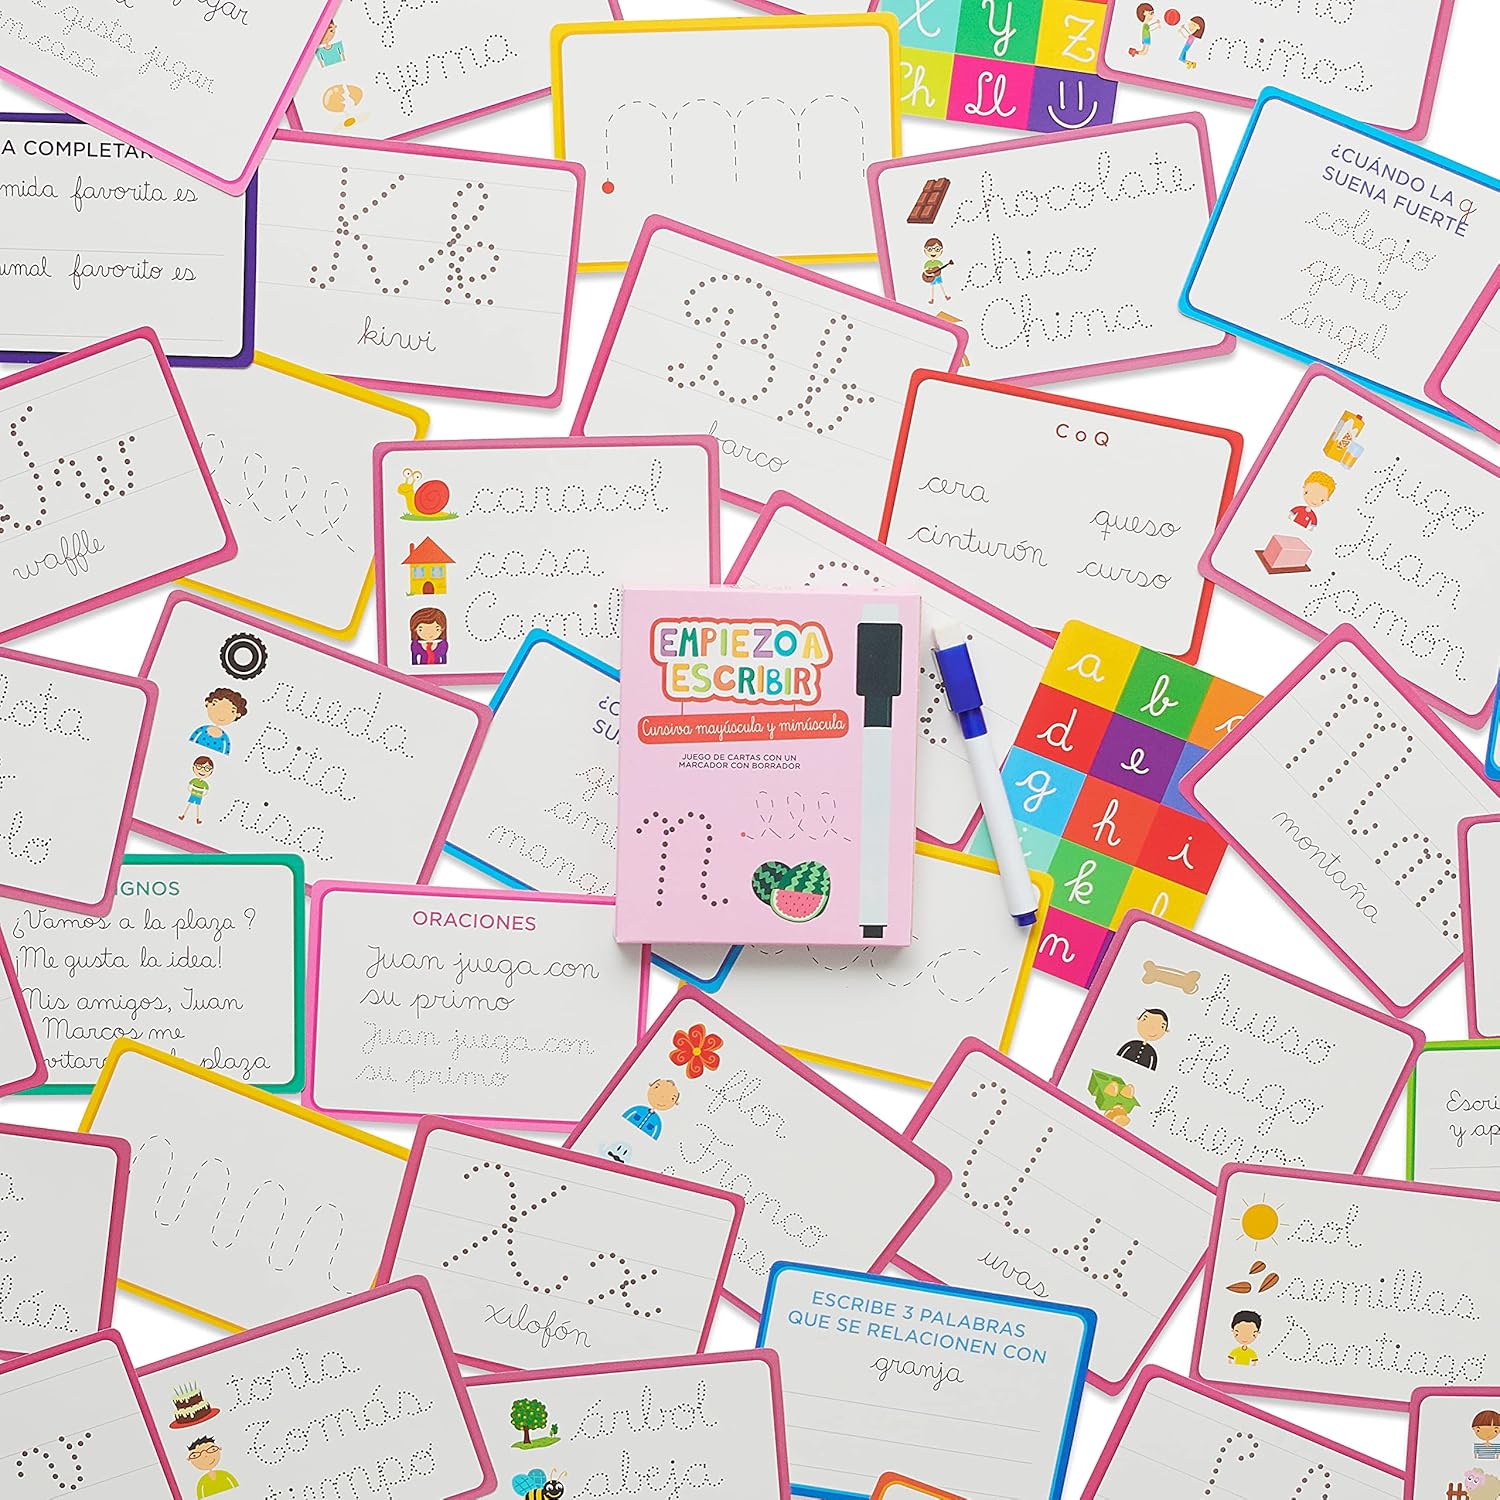 gusta jugar
casa
yema
X y Z
Ch Ll
niños
A COMPLETAR
mida favorita es
favorito es
K k
kiwi
chocolate
chico
China
¿CUÁNDO LA g
SUENA FUERTE
colegio
genio
ángel
B b
barco
waffle
caracol
casa
Camil
C o Q
cera
queso
cinturón
curso
jugo
Juan
jamón
rueda
Rita
risa
EMPIEZO A
ESCRIBIR
Cursiva mayúscula y minúscula
JUEGO DE CARTAS CON UN
MARCADOR CON BORRADOR
n
a b
d e
g h i
k l
n
M m
montaña
IGNOS
¿Vamos a la plaza?
¡Me gusta la idea!
Mis amigos, Juan
Marcos me
plaza
ORACIONES
Juan juega con
su primo
Juan juega con
su primo
flor
Franco
hueso
Hugo
huevo
U u
uvas
X x
xilofón
sol
semillas
Santiago
ESCRIBE 3 PALABRAS
QUE SE RELACIONEN CON
granja
torta
Tomás
tiempo
árbol
abeja
Escri
y ap
r